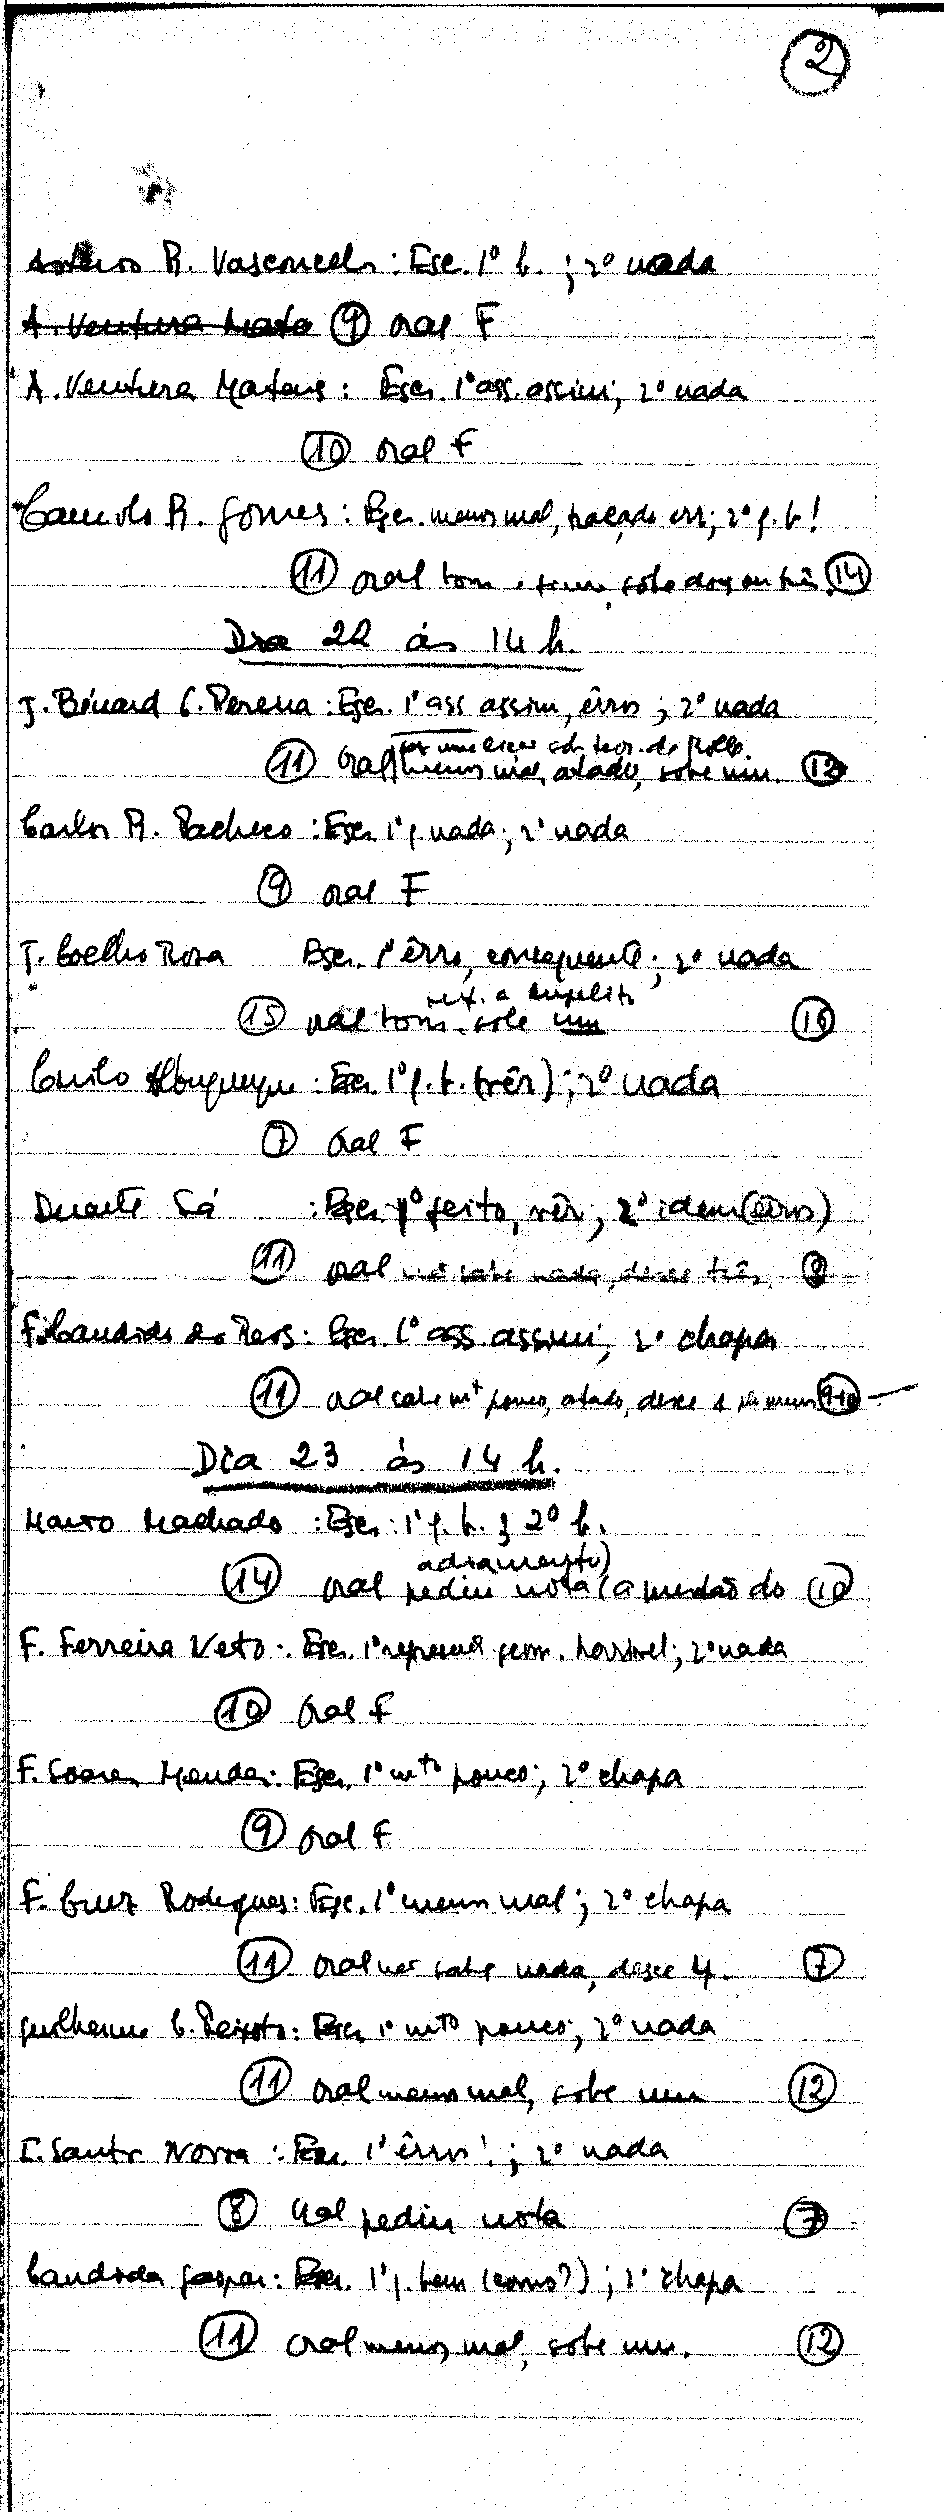 2
R. Vasconcelos: Esc. 1º b.; 2º nada
A. Ventura Mata 9 oral F
A. Ventura Mateus: Esc. 1º ass. assim; 2º nada
10 oral F
R. Gomes: Esc. menos mal, traçado err; 2º q. b!
11 oral bom sobe dois ou três 14
Dia 22 às 14 h.
J. Bénard C. Pereira: Esc. 1º ass assim, êrros; 2º nada
teor. do Rolle
11 oral menos mal, atado, sobe um. 12
Carlos R. Pacheco: Esc. 1º q nada; 2º nada
9 oral F
J. Coelho Rosa Esc. 1º êrro, consequente; 2º nada
15 oral bom. sobe um 16
Albuquerque: Esc. 1º q. b. (três); 2º nada
7 oral F
Duarte Sá: Esc. 1º feito, 2º idem (êrros)
11 oral não sabe nada, desce três
F. Candido dos Reis: Esc. 1º ass. assim, 2º chapa
11 oral sabe mtº pouco, atado, desce 1 pelo menos 9-10
Dia 23 às 14 h.
Mário Machado: Esc. 1º q. b. 2º b.
adiamento)
14 oral pediu nota (a pedido do 10
F. Ferreira Neto: Esc. 1º geom. horrivel; 2º nada
10 oral F
F. Soares Mendes: Esc. 1º mtº pouco; 2º chapa
9 oral F
F. Cruz Rodrigues: Esc. 1º menos mal; 2º chapa
11 oral não sabe nada, desce 4. 7
Guilherme C. Peixoto: Esc. 1º mtº pouco; 2º nada
11 oral menos mal, sobe um 12
Santos Nora: Esc. 1º êrros!; 2º nada
8 oral pediu nota 7
Candida Gaspar: Esc. 1º q. bem (como?); 2º chapa
11 oral menos mal, sobe um. 12